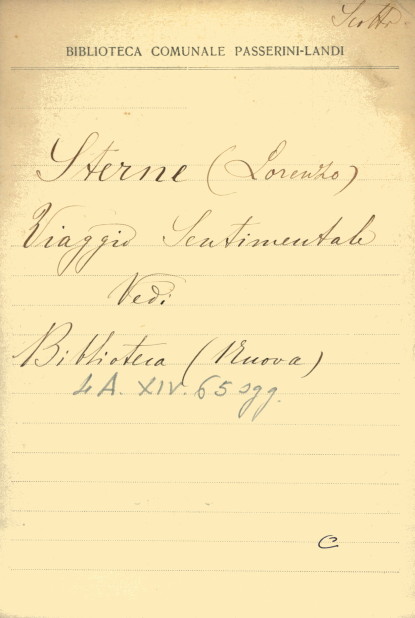 Scotti
BIBLIOTECA COMUNALE PASSERINI-LANDI
Sterne (Lorenzo)
Viaggio Sentimentale
Vedi
Biblioteca (Nuova)
4 A. XIV. 65 sgg.
C